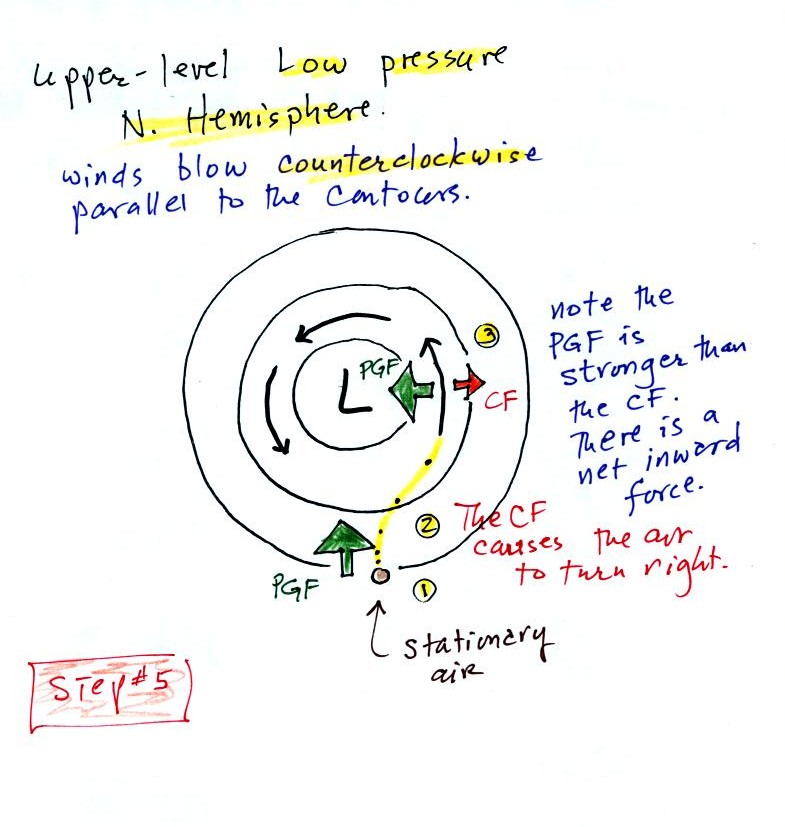 upper-level Low pressure
N. Hemisphere.
winds blow counterclockwise
parallel to the contours.
note the
PGF is
stronger than
the CF.
There is a
net inward
force.
3
PGF
L
CF
2 The CF
causes the air
to turn right.
PGF
1
stationary
air
Step #5